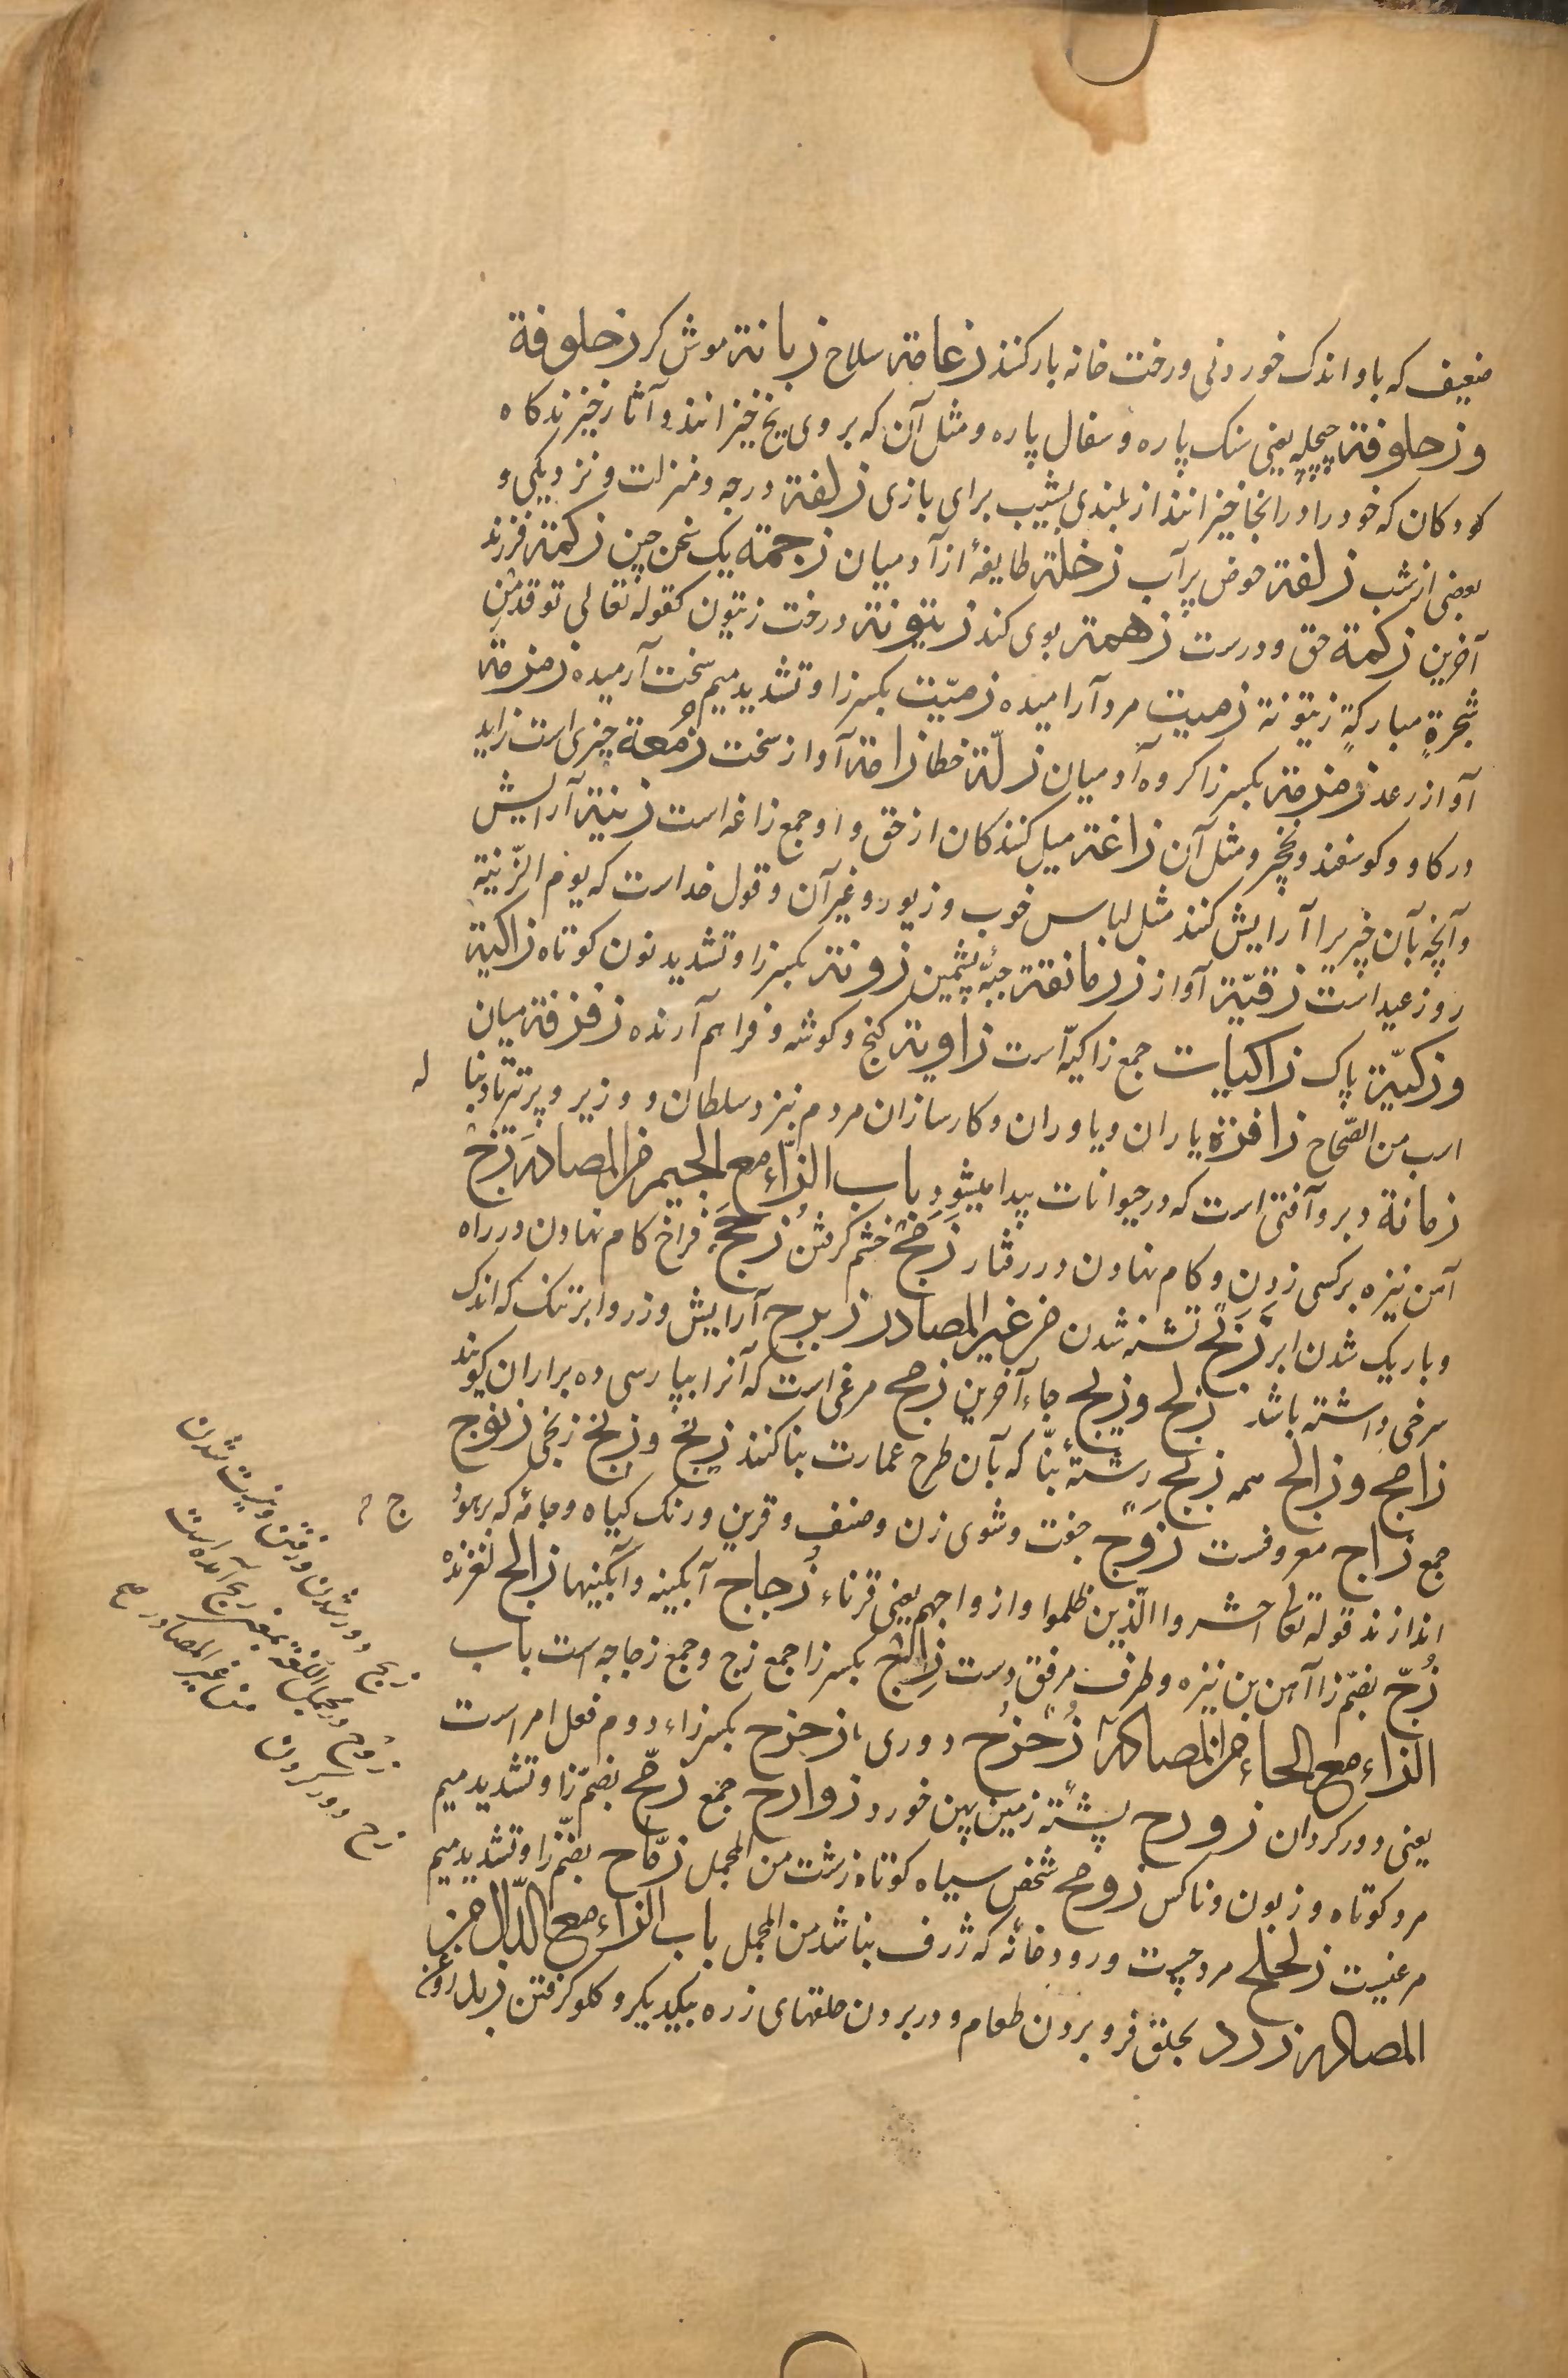 ضعیف که باو اندک خوردنی و رخت خانه بار کنند زعامة سلاح زبانة موش کر زحلوفة
وزحلوفة چپچله یعنی سنک پاره و سفال پاره و مثل آن که بروی یخ خیزانند و آثار خیزندکاه
کودکان که خود را در انجا خیزانند از بلندی بشیب برای بازی زلفة درجه و منزلت و نزدیکی و
بعضی از شب زلفة حوض پر آب زخلة طایفهٔ از آدمیان زجمة یک سخن چین زکمة فرزند
آخرین زکمة حق و درست زهمة بوی کند زیتونة درخت زیتون کقوله تعالی توقد من
شجرةٍ مبارکةٍ زیتونة زمیت مرد آرامیده زمیّت بکسر زا و تشدید میم سخت آرمیده زمزمة
آواز رعد زمزمة بکسر زا کروه آدمیان زلّة خطا زامة آواز سخت زمعة چیزی است زاید
در کاو و کوسفند و نخچر و مثل آن زاغة میل کنندکان از حق و او جمع زاغه است زینة آرایش
و آنچه بآن چیزیرا آرایش کنند مثل لباس خوب و زیور و غیر آن و قول خداست که یوم الزّینة
روز عید است زقیّة آواز زرمانقة جبّهٔ پشمین زونة بکسر زا و تشدید نون کوتاه زاکیة
وزکیّة پاک زاکیات جمع زاکیه است زاویة کنج و کوشه و فراهم آرنده زفزفة میان
ارب من الصّحاح زافرة یاران و یاوران و کارسازان مردم نزد سلطان و وزیر و پرتیر تا دنبا له
زمانة دبر و آفتی است که در حیوانات پیدا میشود باب الزّاء مع الجیم من المصادر زجّ
آهن نیزه برکسی زدن و کام نهادن در رفتار زَمَجٌ خشم کرفتن زَجَجٌ فراخ کام نهادن در راه
و باریک شدن ابر زَنَجٌ تشنه شدن من غیر المصادر زبرج آرایش و زر و ابر تنک که اندک
سرخی داشته باشد زلج وزلیج جاء آخرین زمج مرغی است که آنرا بپارسی ده براران کویند
زامج وزالج همه زیج رشتهٔ بنّا که بآن طرح عمارت بنا کنند زنج وزنج زنجی زنوج
جمع زاج معروفست زوج جفت و شوی زن و صنف و قرین و رنک کیاه و جامه که بر هود ج م
اندازند قوله تعالی احشروا الّذین ظلموا و ازواجهم یعنی قرناء زجاج آبکینه و آبکینها زالج لغزنده
زُجّ بضمّ زا آهن بن نیزه و طرف مرفق دست زِجاج بکسر زا جمع زج و جمع زجاجه است باب
الزاء مع الحاء من المصادر زُحزُح دوری زحزح بکسر زاء دوم فعل امر است
یعنی دور کردان زورح پشتهٔ زمین پهن خورد زوارح جمع زمّح بضمّ زا و تشدید میم
مرد کوتاه و زبون و ناکس زومح شخص سیاه کوتاه زشت من المجمل زمّاح بضمّ زا و تشدید میم
مرغیست زلحلح مرد چست و رودخانهٔ که ژرف نباشد من المجمل باب الزاء مع الدّال من
المصادر زرد بحلق فرو بردن طعام و در بردن حلقهای زره بیکدیکر و کلو کرفتن
زیح دور شدن و رفتن و نیست شدن
زوح در مجمل اللغة بمعنی زیح آمده است
زح دور کردن من غیر المصادر صح